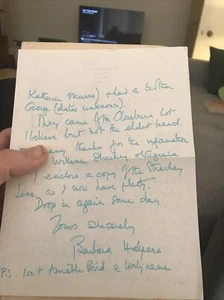 Katrine Munro) & had a brother
George (dates unknown).
They came from Cleeburn Lot
I believe but not the eldest
many thanks for the information
William Strachey
I enclose a copy of the Strachey
line, as I now have plenty.
Drop in again some day
Yours Sincerely
Barbara Halpern
P.S. Isn't Amable Bird a lovely name